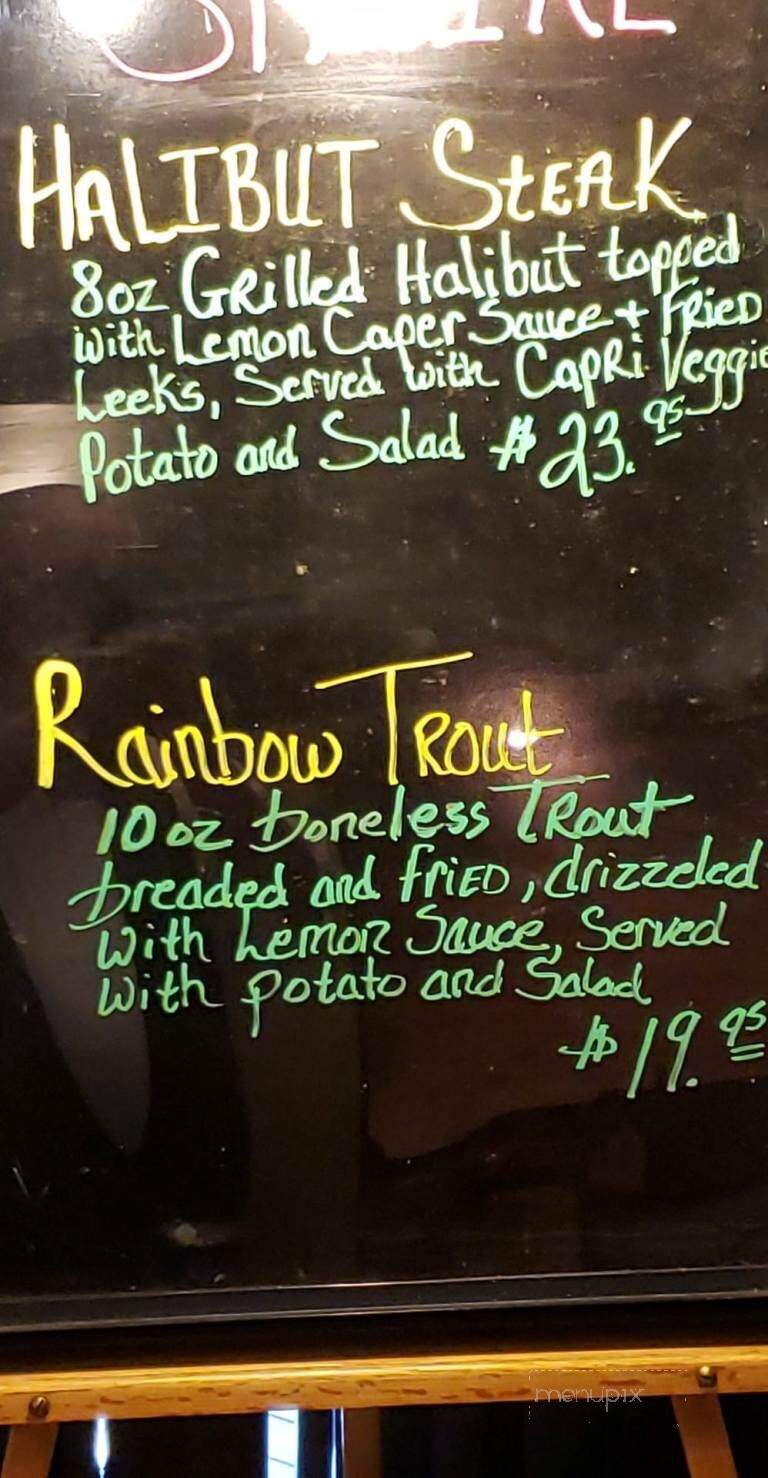 HALIBUT StEAK
8oz Grilled Halibut topped
with Lemon Caper Sauce + FRiED
Leeks, Served with CapRi Veggie
Potato and Salad $23.95
Rainbow TRout
10 oz boneless TRout
breaded and friED, drizzeled
With Lemon Sauce, Served
With potato and Salad
$19.95
menupix